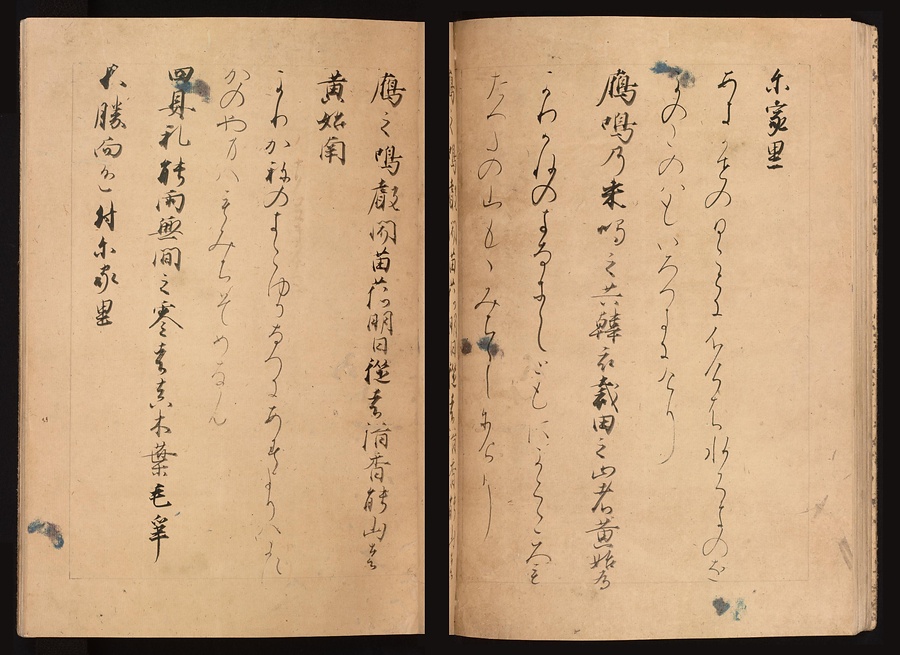 尓家里
あきかせのひことにふけはみつくきのを
かのこのはもいろつきにけり
鴈鳴乃来鳴之共韓衣裁田之山者黄始有
かりかねのきなきしともにからころも
たつたの山もゝみちしにけり
鴈之鳴聲聞苗荷明日従者借香能山者
黄始南
かりかねのきこゆるなへにあすよりはかす
かのやまはもみちそめなん
四具礼能雨無間之零者真木葉毛爭
不勝而色付尓家里